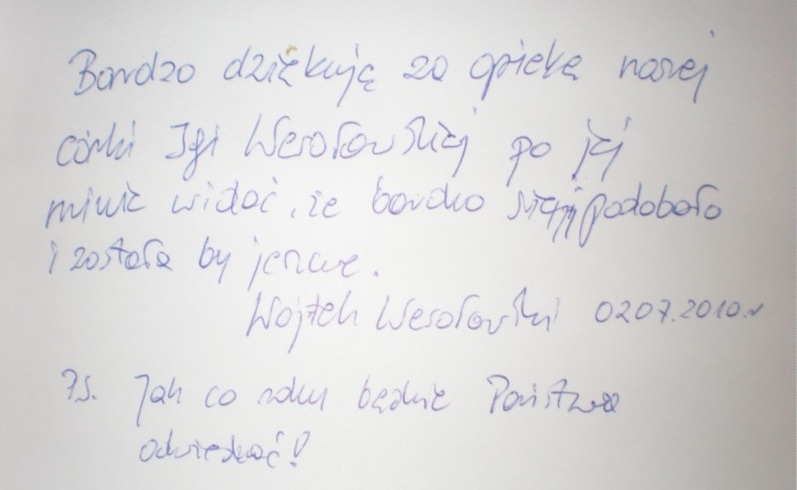 Bardzo dziękuję za opiekę naszej
córki Igi Wesołowskiej po jej
minie widać, że bardzo się jej podobało
i została by jeszcze.
Wojtek Wesołowski 02.07.2010r
Ps. Jak co roku będzie Państwa
odwiedzać!